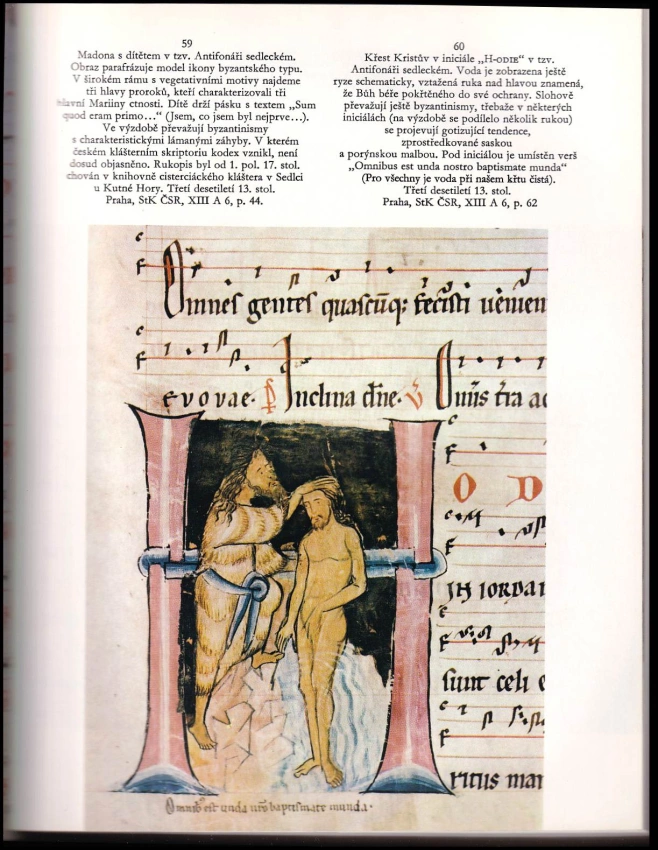 59
Madona s dítětem v tzv. Antifonáři sedleckém.
Obraz parafrázuje model ikony byzantského typu.
V širokém rámu s vegetativními motivy najdeme
tři hlavy proroků, kteří charakterizovali tři
hlavní Mariiny ctnosti. Dítě drží pásku s textem „Sum
quod eram primo…“ (Jsem, co jsem byl nejprve…).
Ve výzdobě převažují byzantinismy
s charakteristickými lámanými záhyby. V kterém
českém klášterním skriptoriu kodex vznikl, není
dosud objasněno. Rukopis byl od 1. pol. 17. stol.
chován v knihovně cisterciáckého kláštera v Sedlci
u Kutné Hory. Třetí desetiletí 13. stol.
Praha, StK ČSR, XIII A 6, p. 44.
60
Křest Kristův v iniciále „H-ODIE“ v tzv.
Antifonáři sedleckém. Voda je zobrazena ještě
ryze schematicky, vztažená ruka nad hlavou znamená,
že Bůh béře pokřtěného do své ochrany. Slohově
převažují ještě byzantinismy, třebaže v některých
iniciálách (na výzdobě se podílelo několik rukou)
se projevují gotizující tendence,
zprostředkované saskou
a porýnskou malbou. Pod iniciálou je umístěn verš
„Omnibus est unda nostro baptismate munda“
(Pro všechny je voda při našem křtu čistá).
Třetí desetiletí 13. stol.
Praha, StK ČSR, XIII A 6, p. 62
Omnes gentes quascūq; fecisti venien
evovae. Inclina dne. ac
H O D
IN IORDAN
sunt celi
ritus man
Omnib; est unda nro baptismate munda.